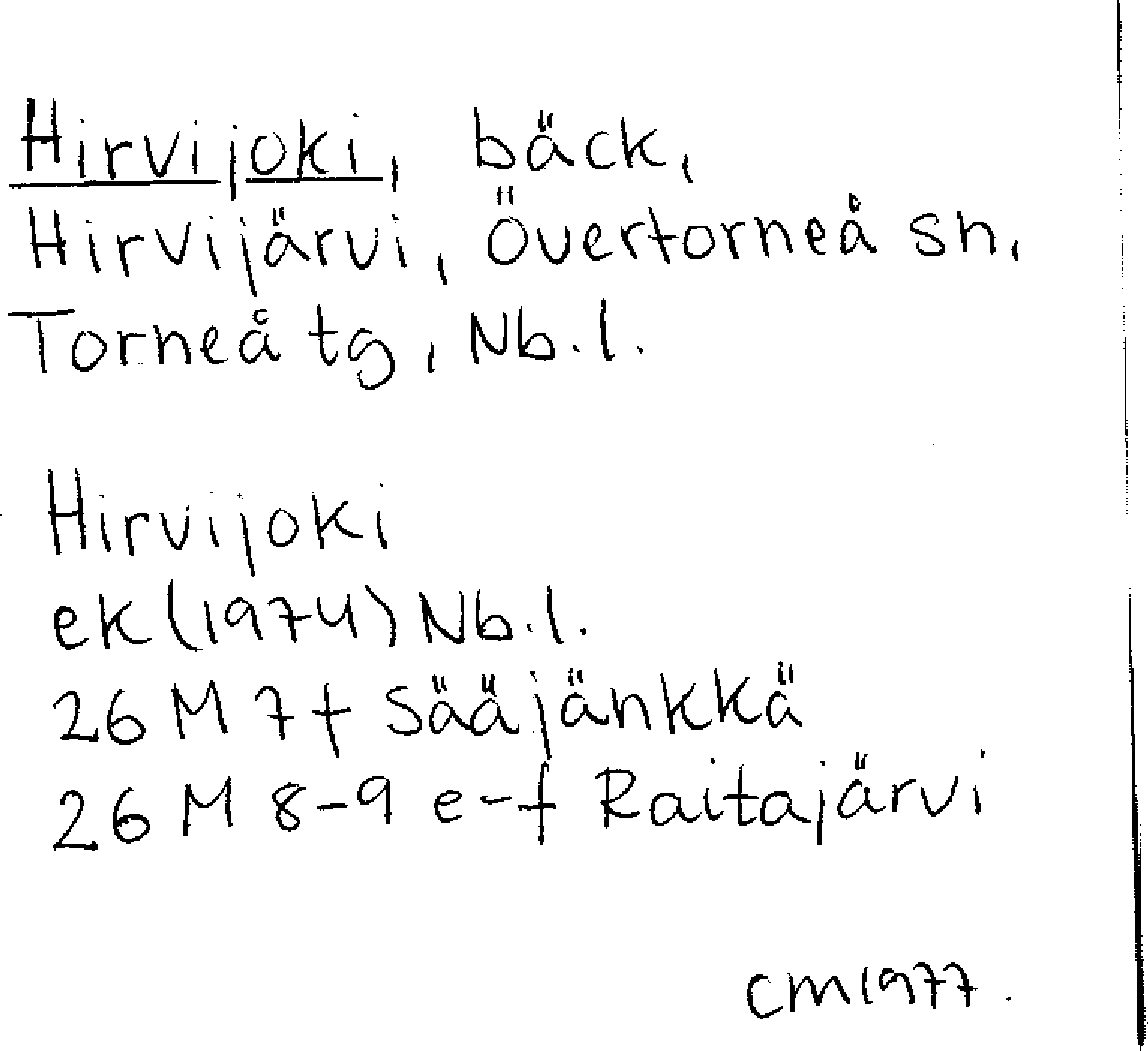 Hirvijoki, bäck,
Hirvijärvi, Övertorneå sn,
Torneå tg, Nb.l.
Hirvijoki
ek (1974) Nb.l.
26 M 7f Sääjänkkä
26 M 8-9 e-f Raitajärvi
CM1977.